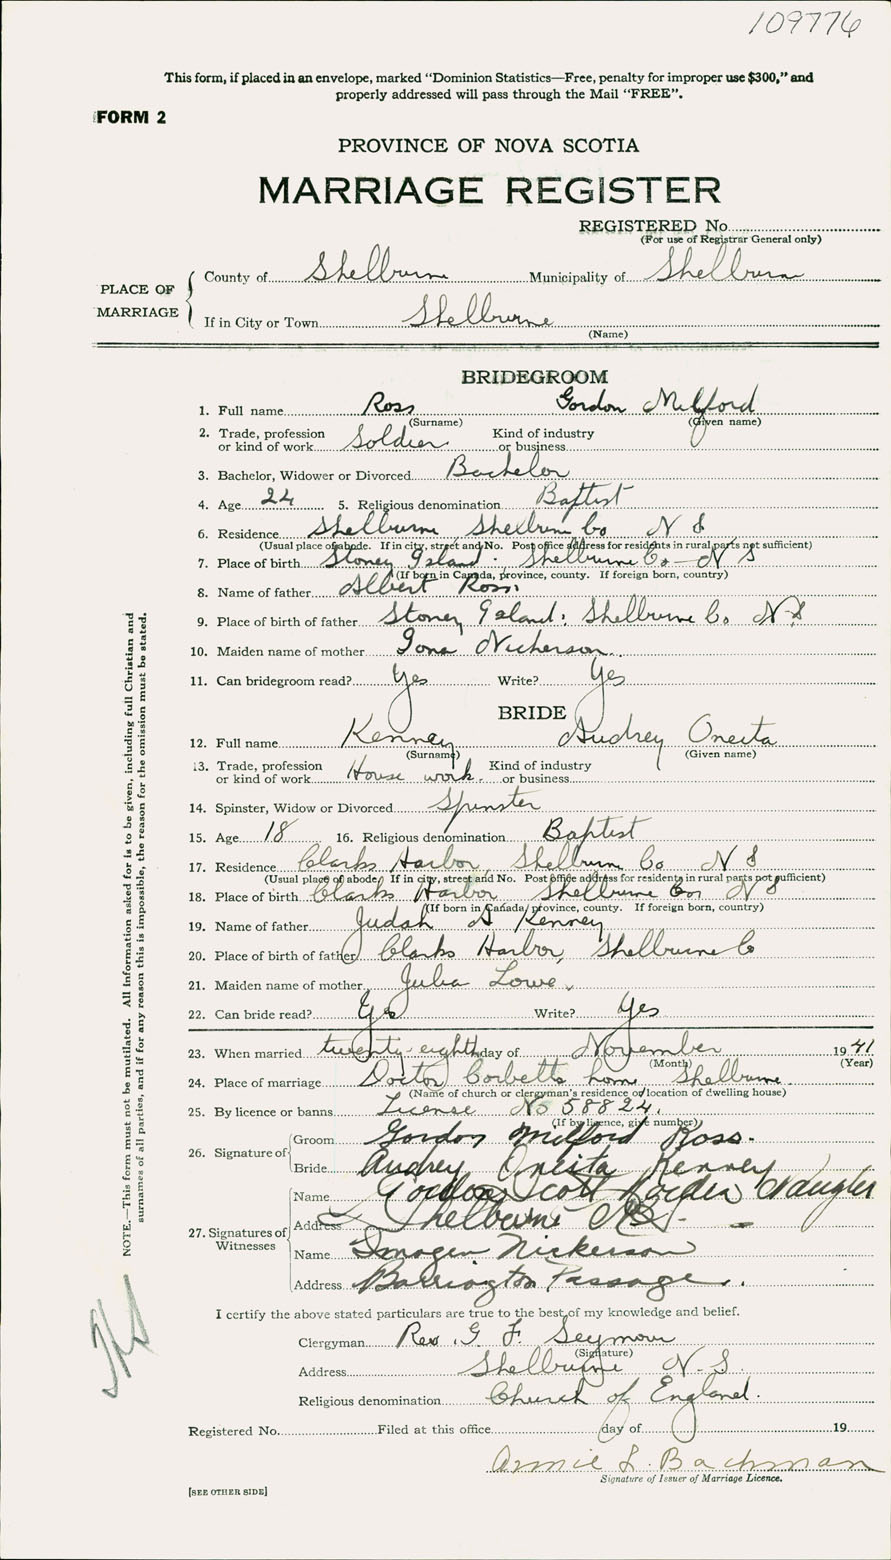 109776
This form, if placed in an envelope, marked "Dominion Statistics—Free, penalty for improper use $300," and
properly addressed will pass through the Mail "FREE".
FORM 2
PROVINCE OF NOVA SCOTIA
MARRIAGE REGISTER
REGISTERED No.
(For use of Registrar General only)
PLACE OF MARRIAGE
County of Shelburne Municipality of Shelburne
If in City or Town Shelburne
(Name)
BRIDEGROOM
1. Full name Ross Gordon Milford
(Surname) (Given name)
2. Trade, profession or kind of work Soldier Kind of industry or business
3. Bachelor, Widower or Divorced Bachelor
4. Age 24 5. Religious denomination Baptist
6. Residence Shelburne Shelburne Co N S
(Usual place of abode. If in city, street and No. Post office address for residents in rural parts not sufficient)
7. Place of birth Stoney Island. Shelburne Co — N S
(If born in Canada, province, county. If foreign born, country)
8. Name of father Albert Ross.
9. Place of birth of father Stoney Island. Shelburne Co N.S
10. Maiden name of mother Iona Nickerson
11. Can bridegroom read? Yes Write? Yes
BRIDE
12. Full name Kenney Audrey Oneita
(Surname) (Given name)
13. Trade, profession or kind of work House work. Kind of industry or business
14. Spinster, Widow or Divorced Spinster
15. Age 18 16. Religious denomination Baptist
17. Residence Clarks Harbor Shelburne Co N S
(Usual place of abode. If in city, street and No. Post office address for residents in rural parts not sufficient)
18. Place of birth Clarks Harbor Shelburne Co. N S
(If born in Canada, province, county. If foreign born, country)
19. Name of father Judah A Kenney
20. Place of birth of father Clarks Harbor, Shelburne Co
21. Maiden name of mother Julia Lowe.
22. Can bride read? Yes Write? Yes
23. When married twenty-eighth day of November 1941
(Month) (Year)
24. Place of marriage Doctor Corbetts home Shelburne.
(Name of church or clergyman's residence or location of dwelling house)
25. By licence or banns License No 58824.
(If by licence, give number)
26. Signature of Groom Gordon Milford Ross.
Bride Audrey Oneita Kenney
27. Signatures of Witnesses
Name Gordon Scott Naugler
Address Shelburne N.S.
Name Imogen Nickerson
Address Barrington Passage.
I certify the above stated particulars are true to the best of my knowledge and belief.
Clergyman Rev. G. F. Seymour
(Signature)
Address Shelburne N.S.
Religious denomination Church of England.
Registered No. Filed at this office day of 19
Annie L. Bachman
Signature of Issuer of Marriage Licence.
[SEE OTHER SIDE]
NOTE.—This form must not be mutilated. All information asked for is to be given, including full Christian and
surnames of all parties, and if for any reason this is impossible, the reason for the omission must be stated.